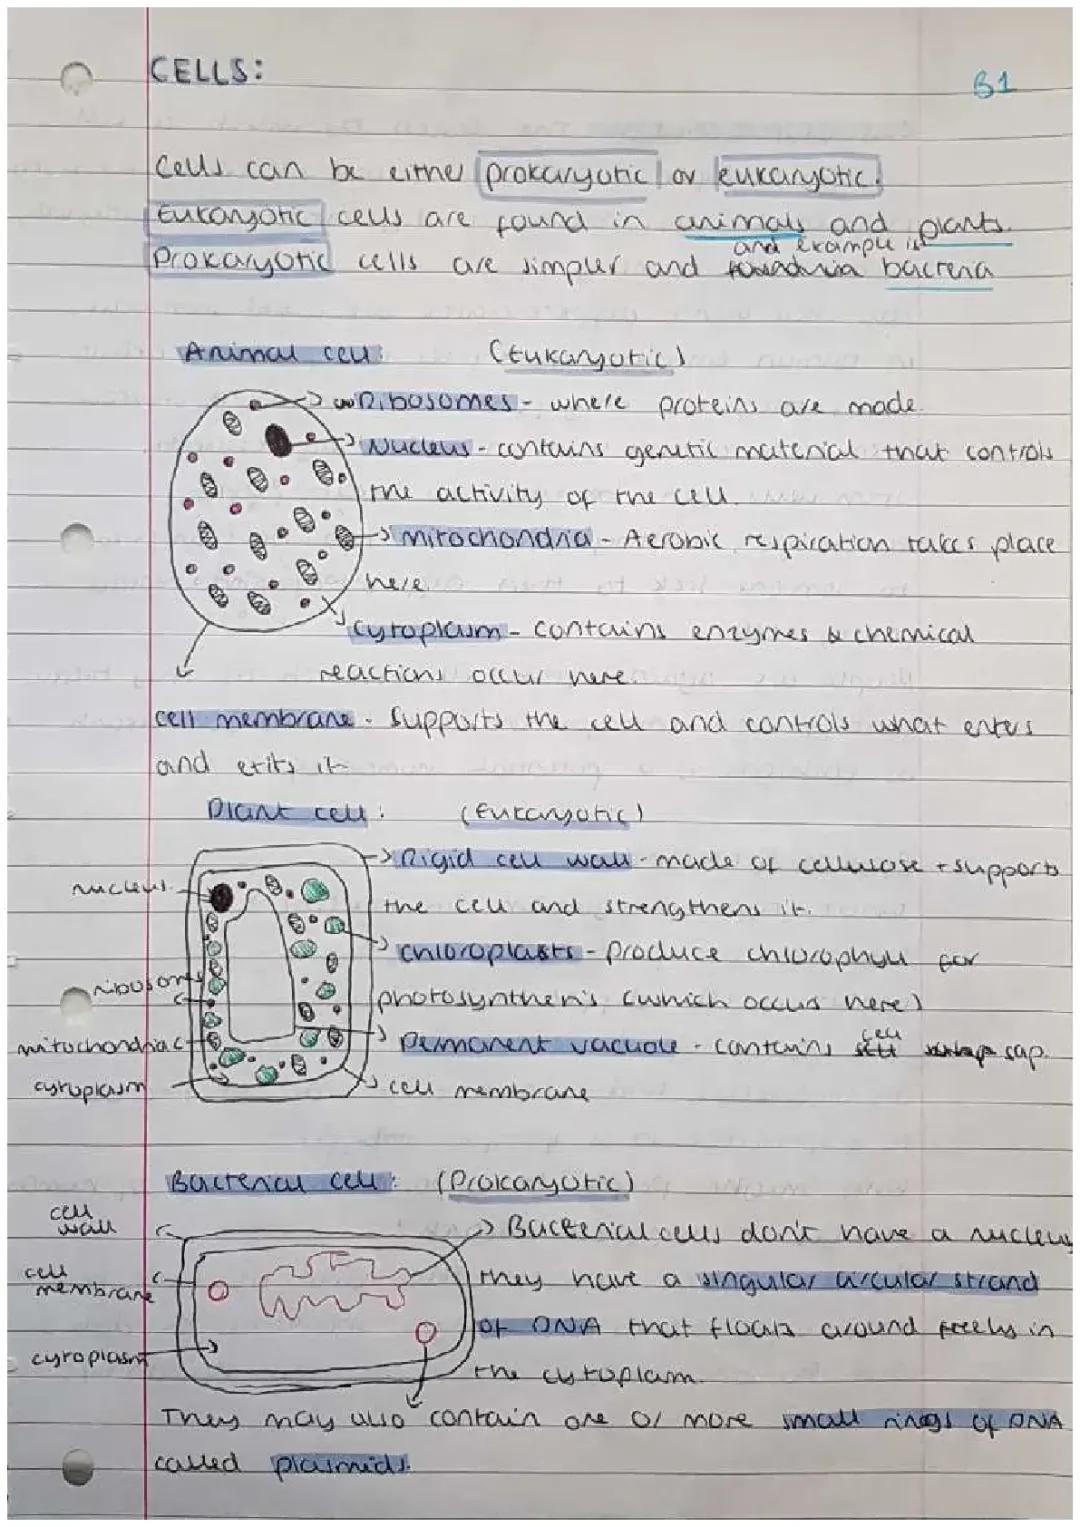 CELLS:
B1
Cells can be either prokaryotic or eukaryotic.
Eukaryotic cells are found in animals and plants.
and example is
Prokaryotic cells are simpler and bacteria
Animal cell: (Eukaryotic)
Ribosomes - where proteins are made.
Nucleus - contains genetic material that controls
the activity of the cell.
mitochondria - Aerobic respiration takes place
here
cytoplasm - contains enzymes & chemical
reactions occur here
cell membrane - supports the cell and controls what enters
and exits it
Plant cell: (Eukaryotic)
Rigid cell wall - made of cellulose + supports
nucleus
the cell and strengthens it.
chloroplasts - produce chlorophyll for
ribosomes
photosynthesis (which occurs here)
mitochondria
cell
Permanent vacuole - contains sap.
cytoplasm
cell membrane
Bacterial cell: (Prokaryotic)
cell
wall
Bacterial cells don't have a nucleus
cell
membrane
they have a singular circular strand
of DNA that floats around freely in
cytoplasm
the cytoplasm.
They may also contain one or more small rings of DNA
called plasmids.